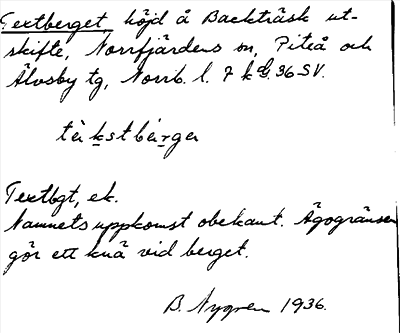 Textberget höjd å Backträsk ut-
skifte, Norrfjärdens sn, Piteå och
Älvsby tg, Norrb. l. 7 k 36 SV.
tèkstbérget
Textbgt, ek.
Namnets uppkomst obekant. Ägogränsen
gör ett knä vid berget.
B. Nygren 1936.